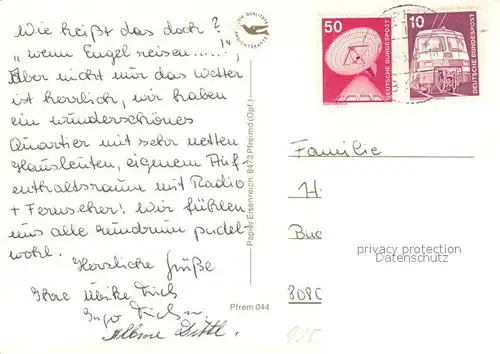 Wie heißt das doch?
"wenn Engel reisen.....!"
Aber nicht nur das Wetter
ist herrlich, wir haben
ein wunderschönes
Quartier mit sehr netten
Hausleuten, eigenem Auf-
enthaltsraum mit Radio
+ Fernseher! Wir fühlen
uns alle rundrum pudel
wohl.
Herzliche Grüße
Ihre
DIE QUALITÄTS
ANSICHTSKARTE
Papier Eisenreich, 8473 Pfreimd (Opf.)
Pfrem 044
50
DEUTSCHE BUNDESPOST
10
DEUTSCHE BUNDESPOST
Familie
H
Buc
privacy protection
Datenschutz
808